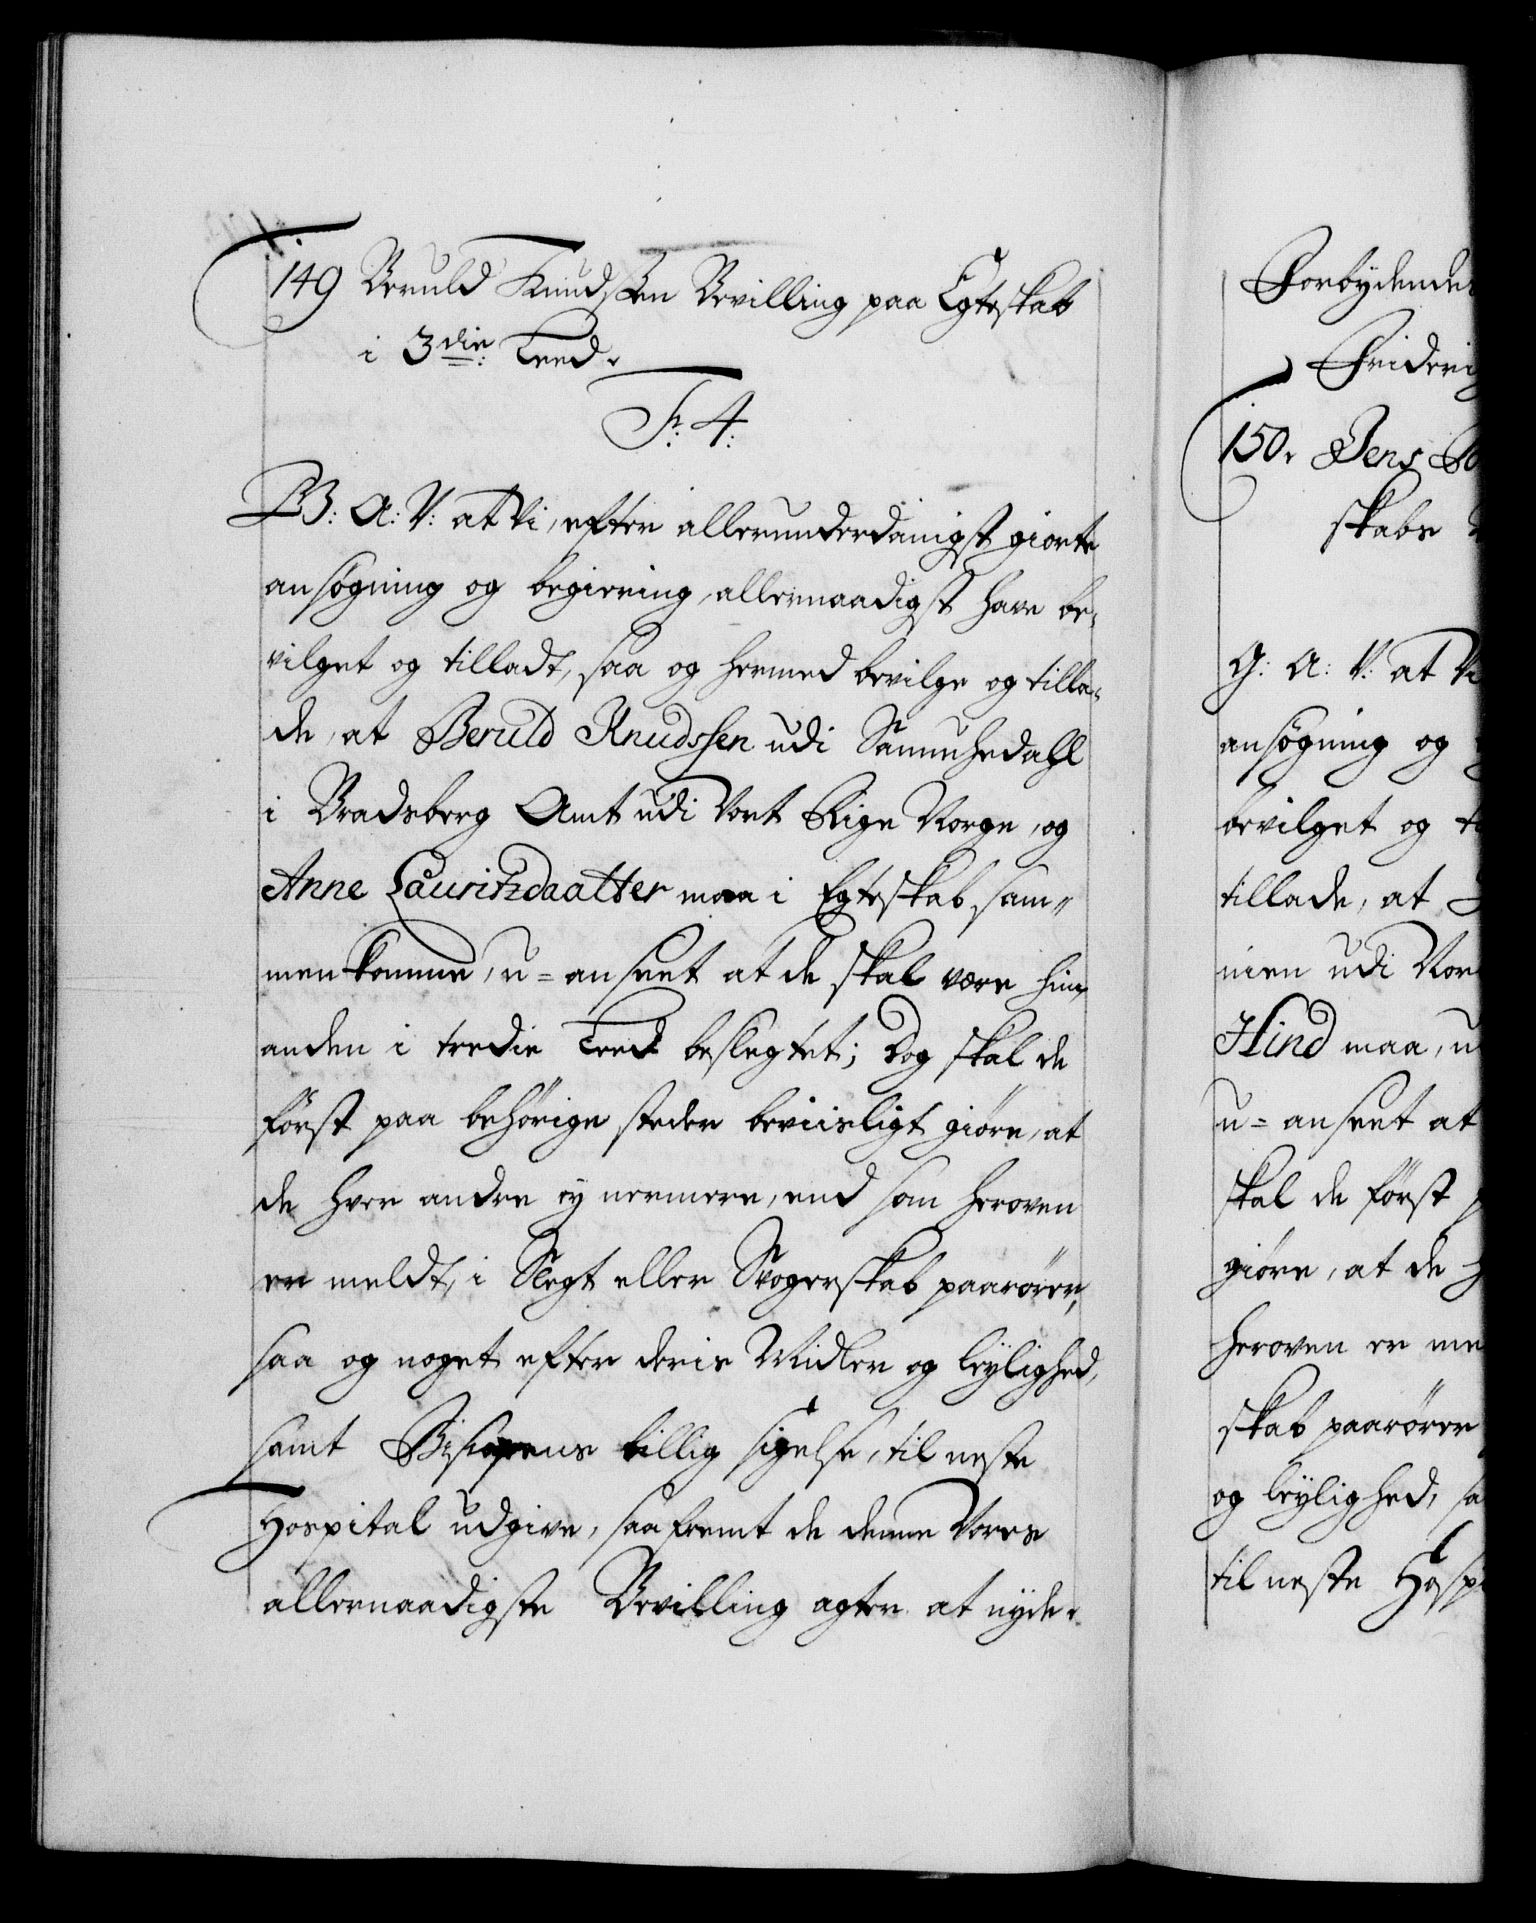 149 Beruld Knudssen Bevilling paa Egteskab
i 3die: Leed.
Fr: 4:
G: A: V: at Vi, efter allerunderdanigst giorte
ansøgning og begiering, allernaadigst have be-
vilget og tilladt, saa og hermed bevilge og tilla-
de, at Beruld Knudssen udi
i Bradsberg Amt udi Vort Rige Norge, og
Anne Lauritzdaatter maa i Egteskab sam-
menkomme, u-anseet at de skal være hin-
anden i tredie Leed beslegtet; Dog skal de
først paa behørige steder beviisligt giøre, at
de hver andre ey nermere, end som heroven
er meldt, i Slegt eller Svogerskab paarører,
saa og noget efter deris Midler og leylighed,
samt Biscopens billig sigelse, til neste
Hospital udgive, saafremt de denne Vores
allernaadigste Bevilling agter at nyde.
Forbydendes
Friderig
150. Jens
skabs
G: A: V: at Vi
ansøgning og
bevilget og
tillade, at
udi Nor
Hind maa, u
u-anseet at
skal de først
giøre, at de
heroven er me
skab paarører
og leylighed, sa
til neste Hospi